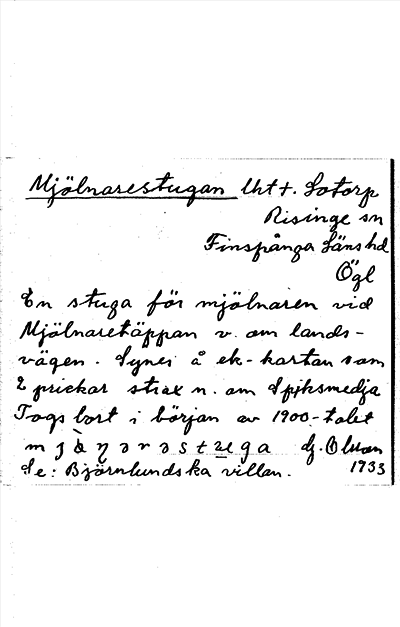 Mjölnarestugan Utt. Lotorp
Risinge sn
Finspånga Läns hd
Ögl
En stuga för mjölnaren vid
Mjölnaretäppan v. om lands-
vägen. Synes å ek-kartan som
2 prickar strax n. om Spiksmedja
Togs bort i början av 1900-talet
dj. Olsson
Se: Björnlundska villan. 1933